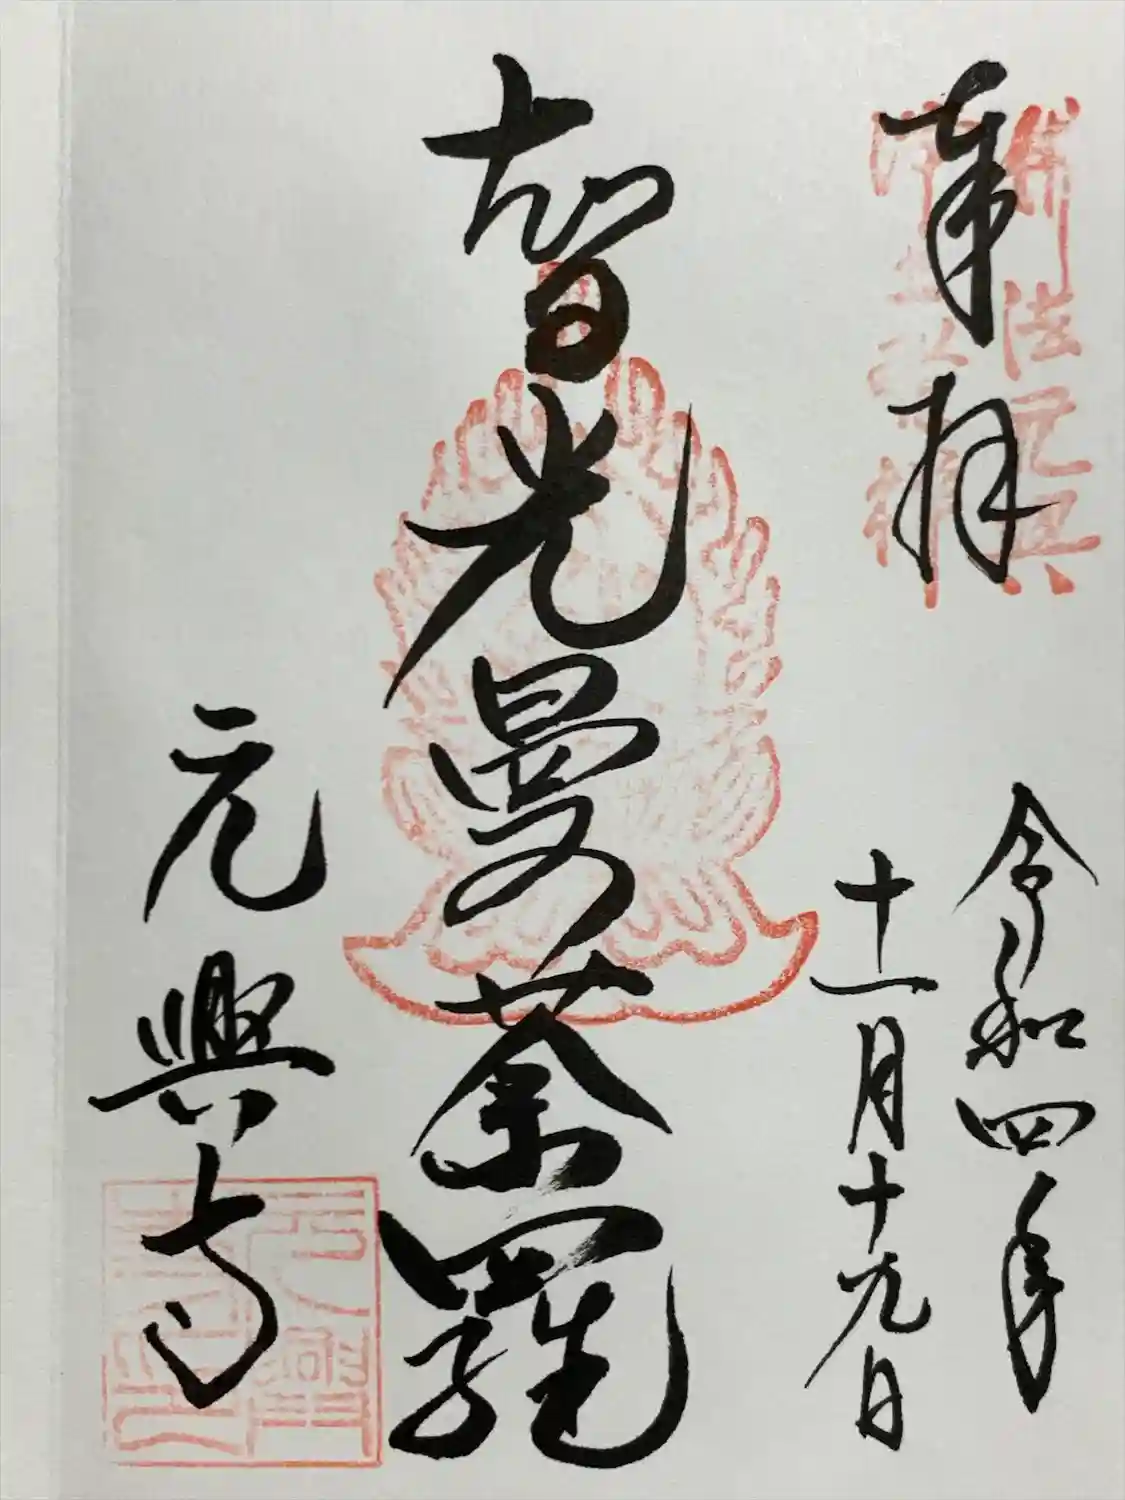 奉拝
令和四年
十一月十九日
智光曼荼羅
元興寺